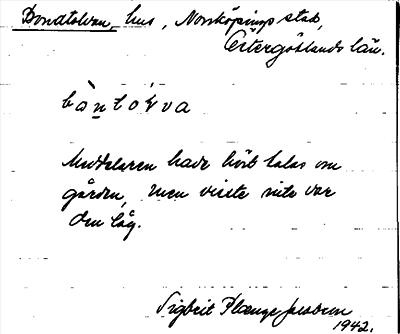 Bondtolvan, hus, Norrköpings stad,
Östergötlands län.
bòntółva
Meddelaren hade hört talas om
gården, men visste inte var
den låg.
Sigbrit Plænge Jacobson
1942.